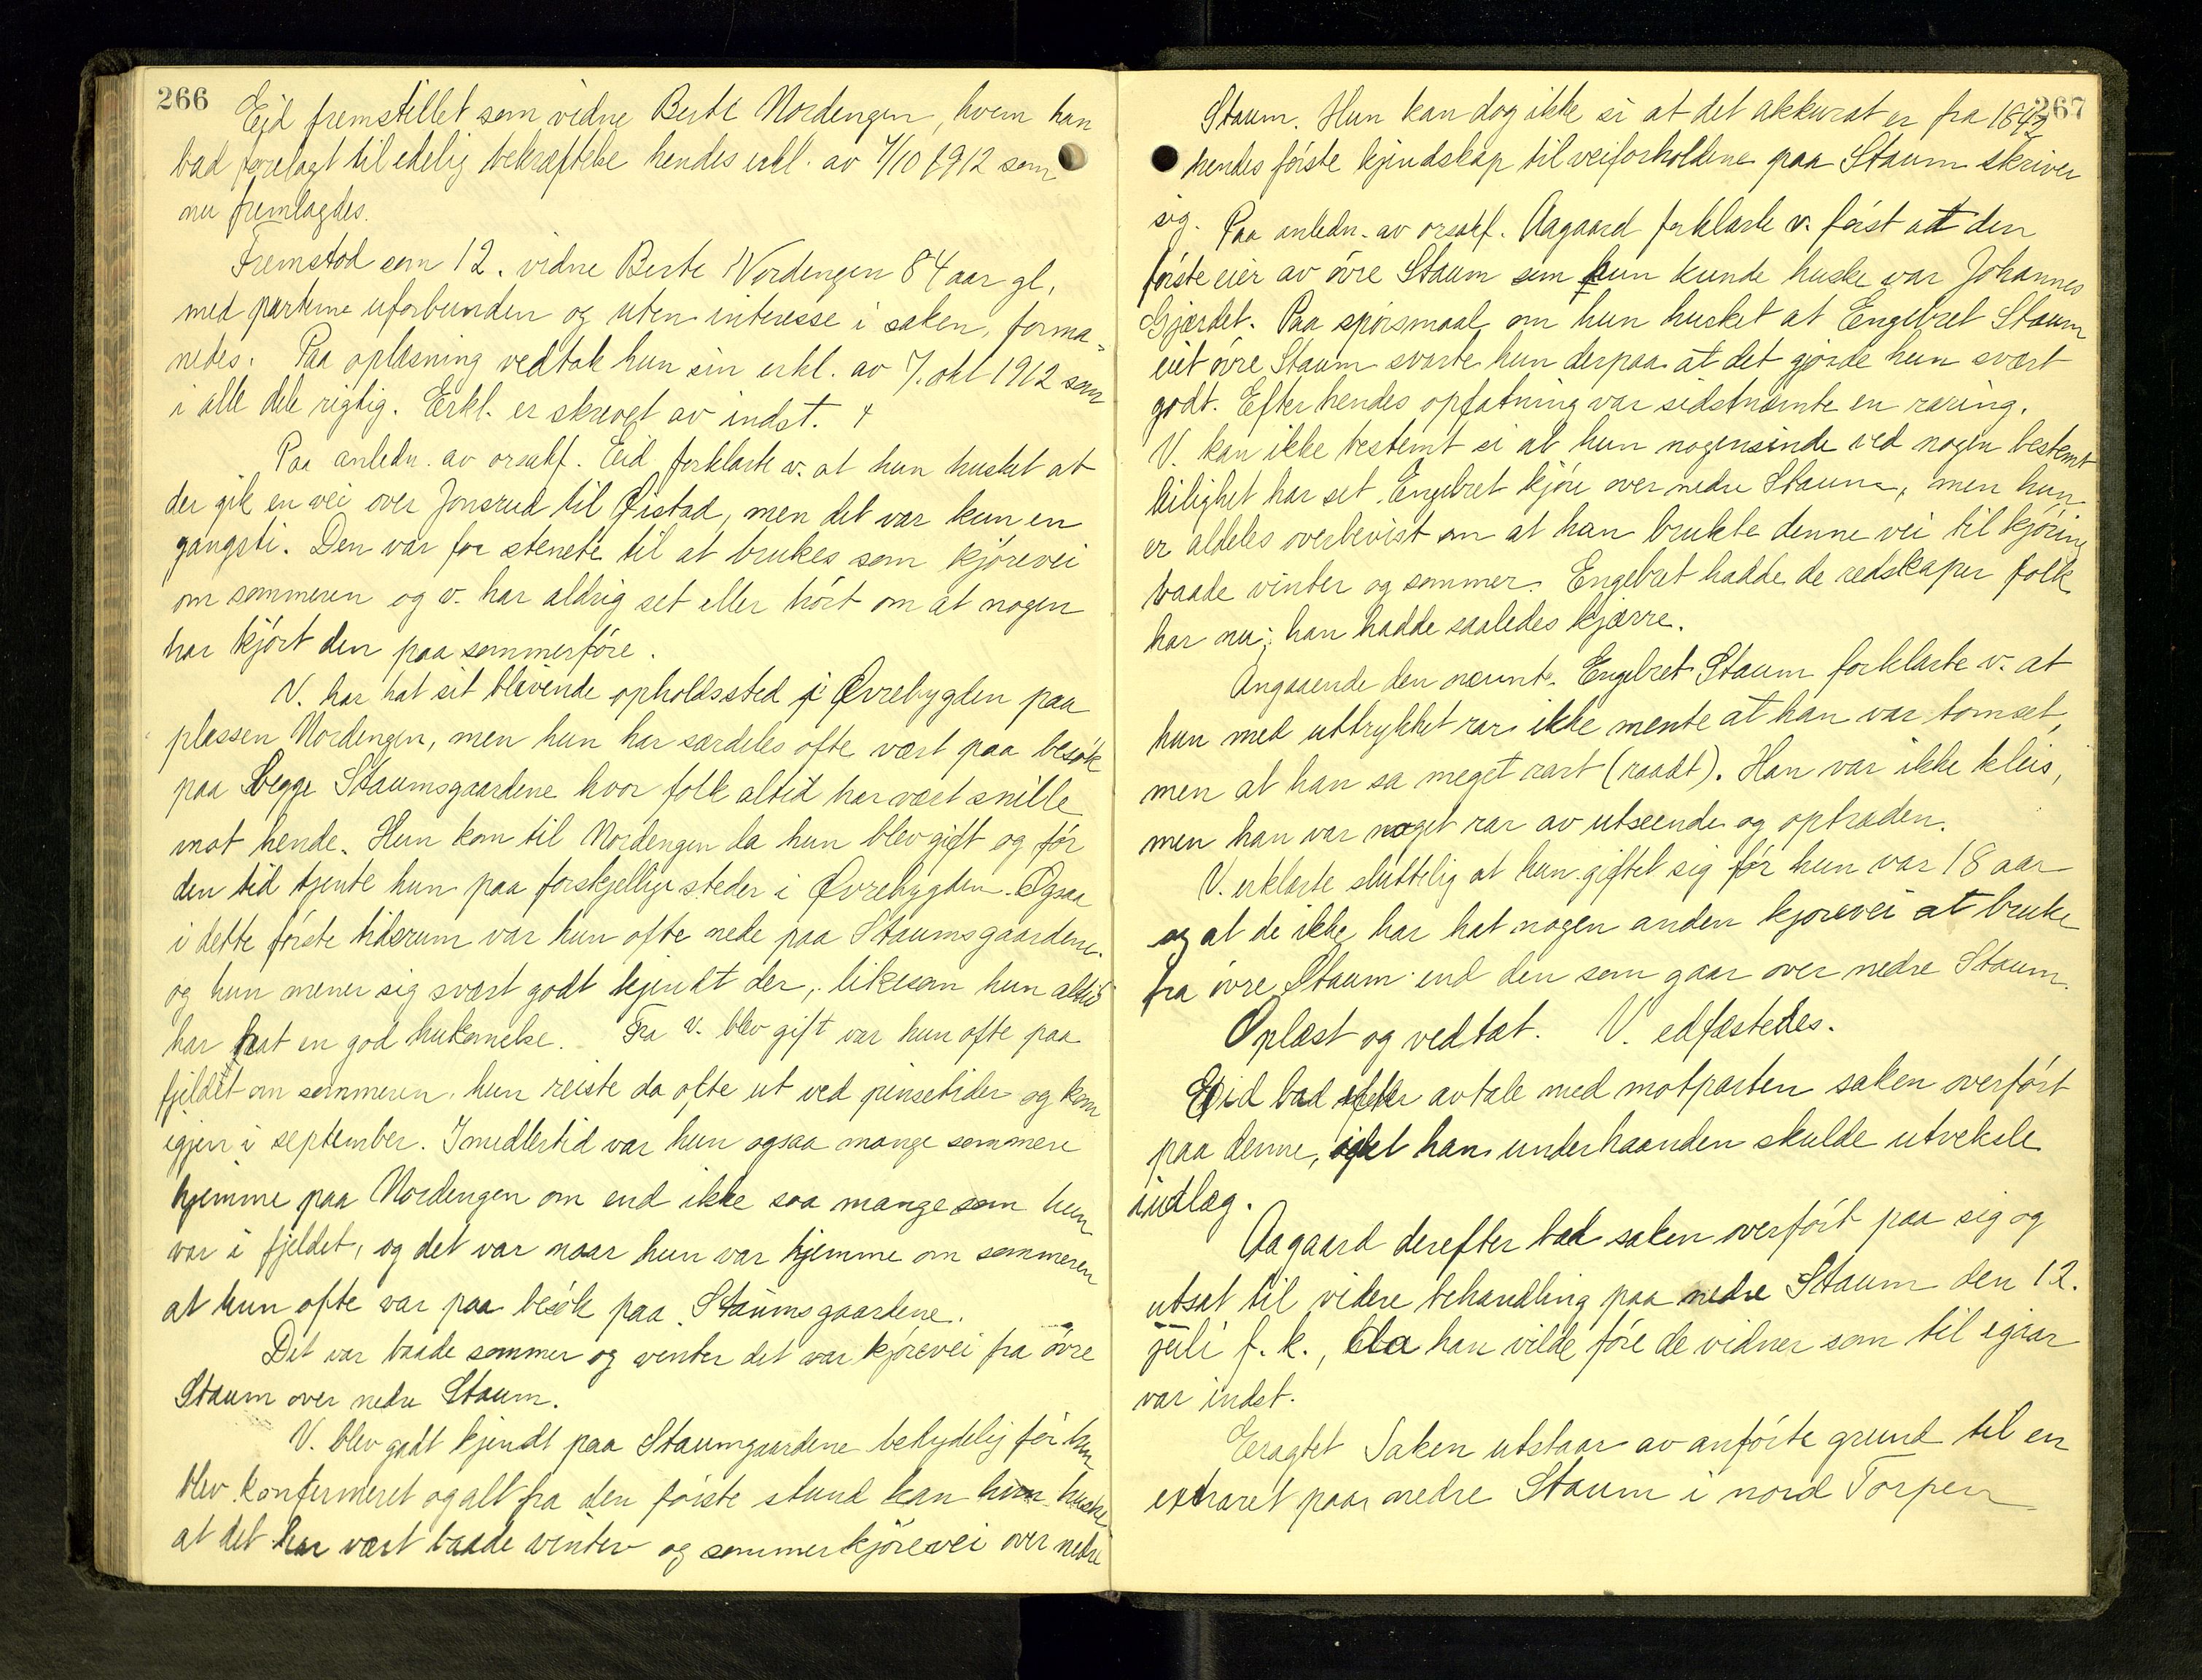 266
Eid fremstillet som vidne Berte Nordengen, hvem han
bad forelagt til edelig bekræftelse hendes erkl. av 7/10 1912 som
nu fremlagdes.
Fremstod som 12. vidne Berte Nordengen 84 aar gl,
med parterne uforbunden og uten interesse i saken, forma-
nedes. Paa oplæsning vedtok hun sin erkl. av 7. okt 1912 som
i alle dele rigtig. Erkl. er skrevet av indst.
Paa anledn. av orsakf. Eid forklarte v. at hun husket at
der gik en vei over Jonsrud til Øistad, men det var kun en
gangsti. Den var for stenete til at brukes som kjørevei
om sommeren og v. har aldrig set eller hørt om at nogen
har kjørt den paa sommerføre.
V. har hat sit blivende opholdssted i Øvrebygden paa
plassen Nordengen, men hun har særdeles ofte vært paa besøk
paa begge Staumsgaardene hvor folk altid har vært snille
mot hende. Hun kom til Nordengen da hun blev gift og før
den tid tjente hun paa forskjellige steder i Øvrebygden. Ogsaa
i dette første tidsrum var hun ofte nede paa Staumsgaardene
og hun mener sig svært godt kjendt der, likesom hun altid
har hat en god hukomelse. Fra v. blev gift var hun ofte paa
fjeldet om sommeren, hun reiste da ofte ut ved pinsetider og kom
igjen i september. Imidlertid var hun ogsaa mange sommere
hjemme paa Nordengen om end ikke saa mange som hun
var i fjeldet, og det var naar hun var hjemme om sommeren
at hun ofte var paa besøk paa Staumsgaardene.
Det var baade sommer og venter det var kjørevei fra øvre
Staum over nedre Staum.
V. blev godt kjendt paa Staumgaardene betydelig før hun
blev konfirmeret og alt fra den første stund kan hun huske
at det har vært baade vinter og sommerkjørevei over nedre
267
Staum. Hun kan dog ikke si at det akkurat er fra 1842
hendes første kjendskap til veiforholdene paa Staum skriver
sig. Paa anledn. av orsakf. Aagaard forklarte v. først at den
første eier av øvre Staum som hun kunde huske var Johannes
Gjærdet. Paa spørsmaal om hun husket at Engebret Staum
eiet øvre Staum svarte hun derpaa at det gjorde hun svært
godt. Efter hendes opfatning var sidstnævnte en raring.
V. kan ikke bestemt si at hun nogensinde ved nogen bestemt
leilighet har set Engebret kjøre over nedre Staum, men hun
er aldeles overbevist om at han brukte denne vei til kjøring
baade vinter og sommer. Engebret hadde de redskaper folk
har nu; han hadde saaledes kjærre.
Angaaende den nævnt. Engebret Staum forklarte v. at
hun med uttrykket rar ikke mente at han var tomset,
men at han sa meget rart (raadt). Han var ikke kleis,
men han var noget rar av utseende og optræden.
V. erklærte sluttelig at hun giftet sig før hun var 18 aar
og at de ikke har hat nogen anden kjørevei at bruke
fra øvre Staum end den som gaar over nedre Staum.
Oplæst og vedtat. V. edfæstedes.
Eid bad efter avtale med motparten saken overført
paa denne, idet han underhaanden skulde utveksle
indlæg.
Aagaard derefter bad saken overført paa sig og
utsat til videre behandling paa nedre Staum den 12.
juli f. k., da han vilde føre de vidner som til igaar
var indst.
Eragtet Saken utstaar av anførte grund til en
extraret paa nedre Staum i nord Torpen